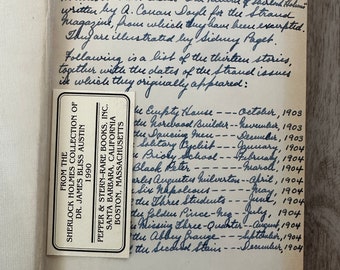 written by A. Conan Doyle for the Strand
Magazine, from which they have been excerpted.
They are illustrated by Sidney Paget.
Following is a list of the thirteen stories,
together with the dates of the Strand issues
in which they originally appeared:
Empty House — October, 1903
Norwood Builder — November, 1903
Dancing Men — December, 1903
Solitary Cyclist — January, 1904
Priory School — February, 1904
Black Peter — March, 1904
Charles Augustus Milverton — April, 1904
Six Napoleons — May, 1904
the Three Students — June, 1904
Golden Pince-Nez — July, 1904
Missing Three-Quarter — August, 1904
the Abbey Grange — September, 1904
the Second Stain — December, 1904
FROM THE
SHERLOCK HOLMES COLLECTION OF
DR. JAMES BLISS AUSTIN
1990
PEPPER & STERN-RARE BOOKS, INC.
SANTA BARBARA, CALIFORNIA
BOSTON, MASSACHUSETTS